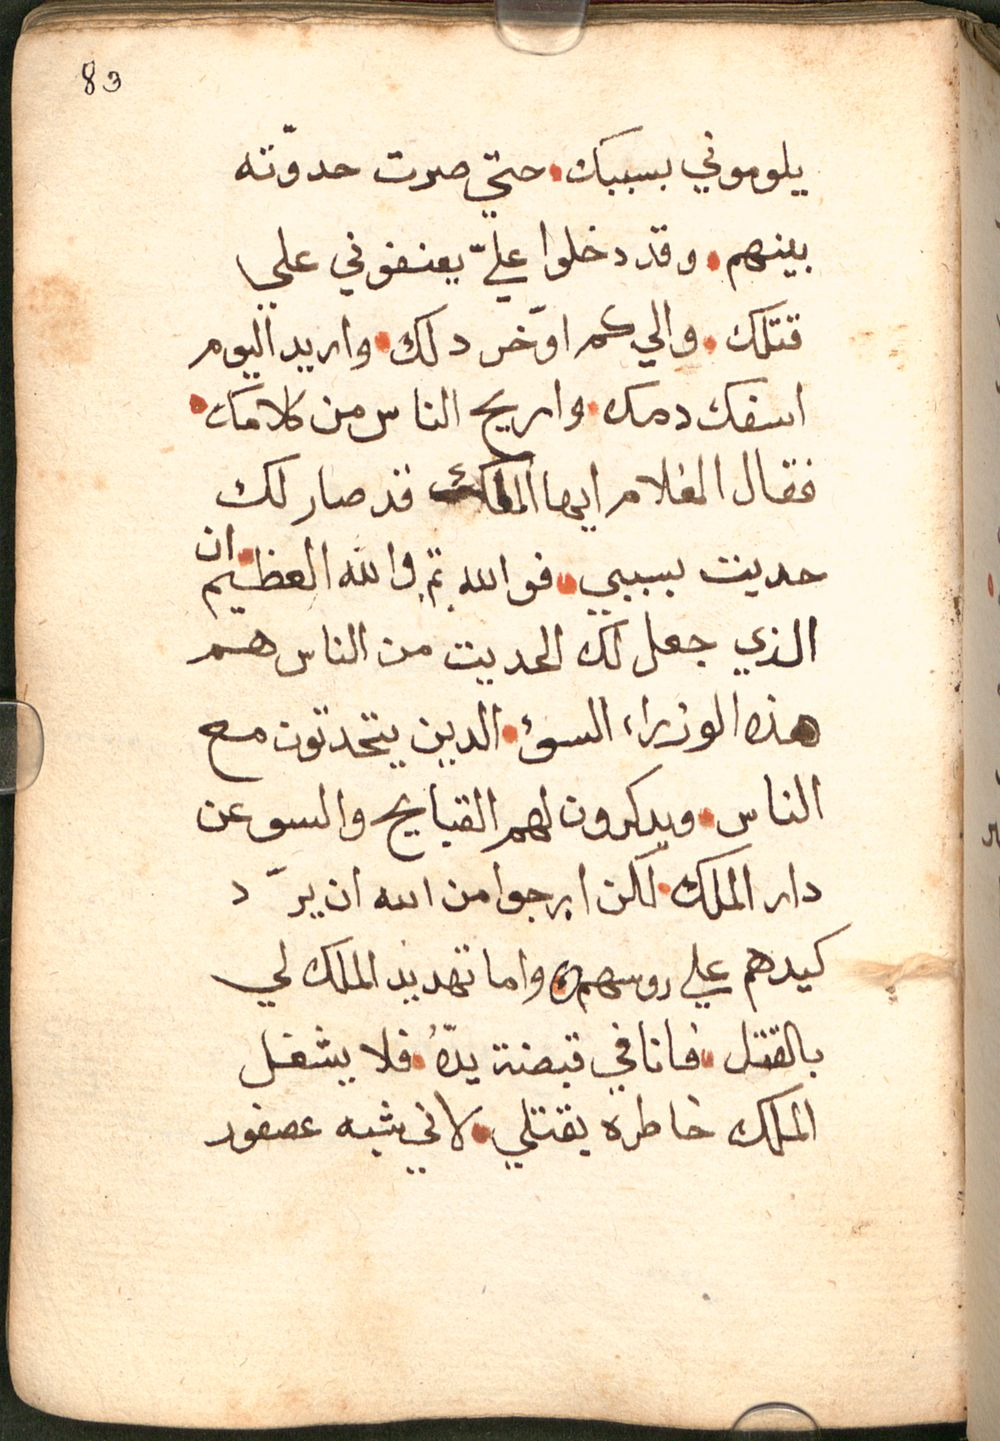 83
يلوموني بسببك. حتي صرت حدوّته
بينهم. وقد دخلوا عليّ يعنفوني علي
قتلك. والي كم اوّخر دلك. واريد اليوم
اسفك دمك. واريح الناس من كلامك.
فقال الغلام ايها الملك قد صار لك
حديت بسببي. فوالله تمّ والله العظيم. ان
الذي جعل لك الحديت من الناس هم
هذه الوزراء السوء. الدين يتحدتون مع
الناس. ويدكرون لهم القبايح والسو عن
دار الملك. لكن ارجوا من الله ان يرّد
كيدهم علي روسهم. واما تهديد الملك لي
بالقتل. فانا في قبضة يدّهُ. فلا يشغل
الملك خاطره بقتلي. لاني شبه عصفور